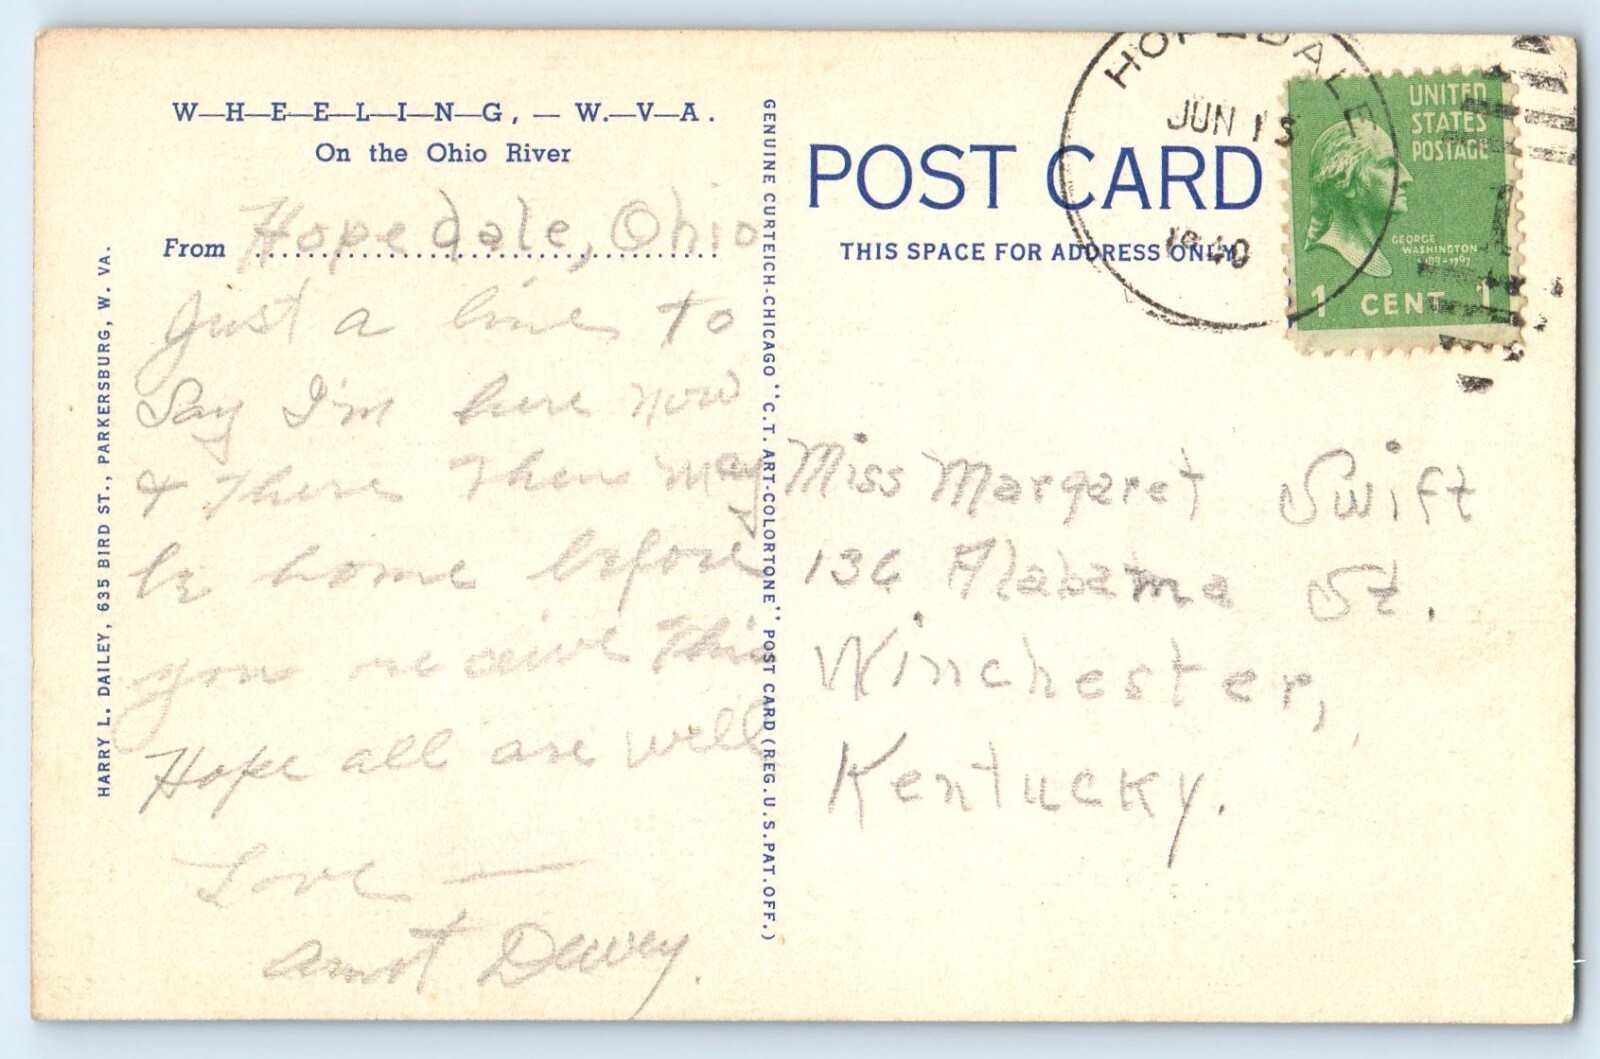 W—H—E—E—L—I—N—G, — W.—V—A.
On the Ohio River
From Hopedale, Ohio
Just a line to
Say I'm here now
& there then may
be home before
you receive this
Hope all are well
Love —
Aunt Dewey.
HARRY L. DAILEY, 635 BIRD ST., PARKERSBURG, W. VA.
GENUINE CURTEICH-CHICAGO "C.T. ART-COLORTONE" POST CARD (REG. U.S. PAT. OFF.)
POST CARD
THIS SPACE FOR ADDRESS ONLY
HOPEDALE
JUN 15
1940
UNITED
STATES
POSTAGE
GEORGE
WASHINGTON
1789-1797
1 CENT 1
Miss Margaret Swift
136 Alabama St.
Winchester,
Kentucky.